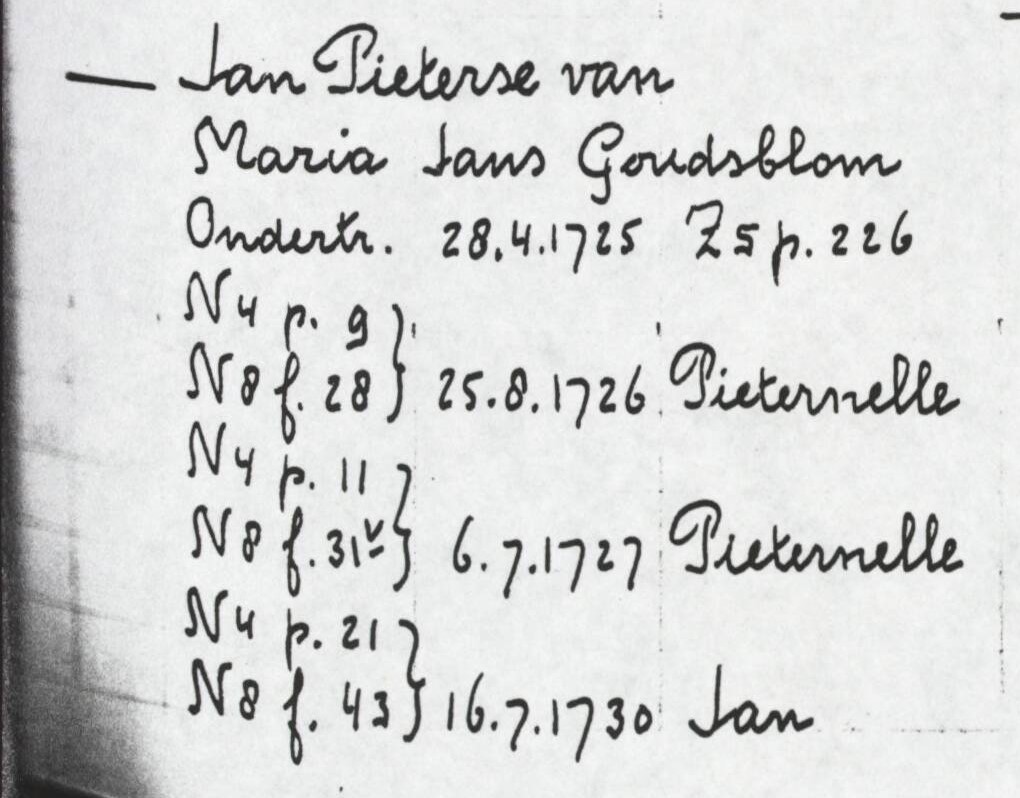 — Jan Pieterse van
Maria Jans Goudsblom
Ondertr. 28.4.1725 Z5 p. 226
N4 p. 9
N8 f. 28 } 25.8.1726 Pieternelle
N4 p. 11
N8 f. 31v } 6.7.1727 Pieternelle
N4 p. 21
N8 f. 43 } 16.7.1730 Jan